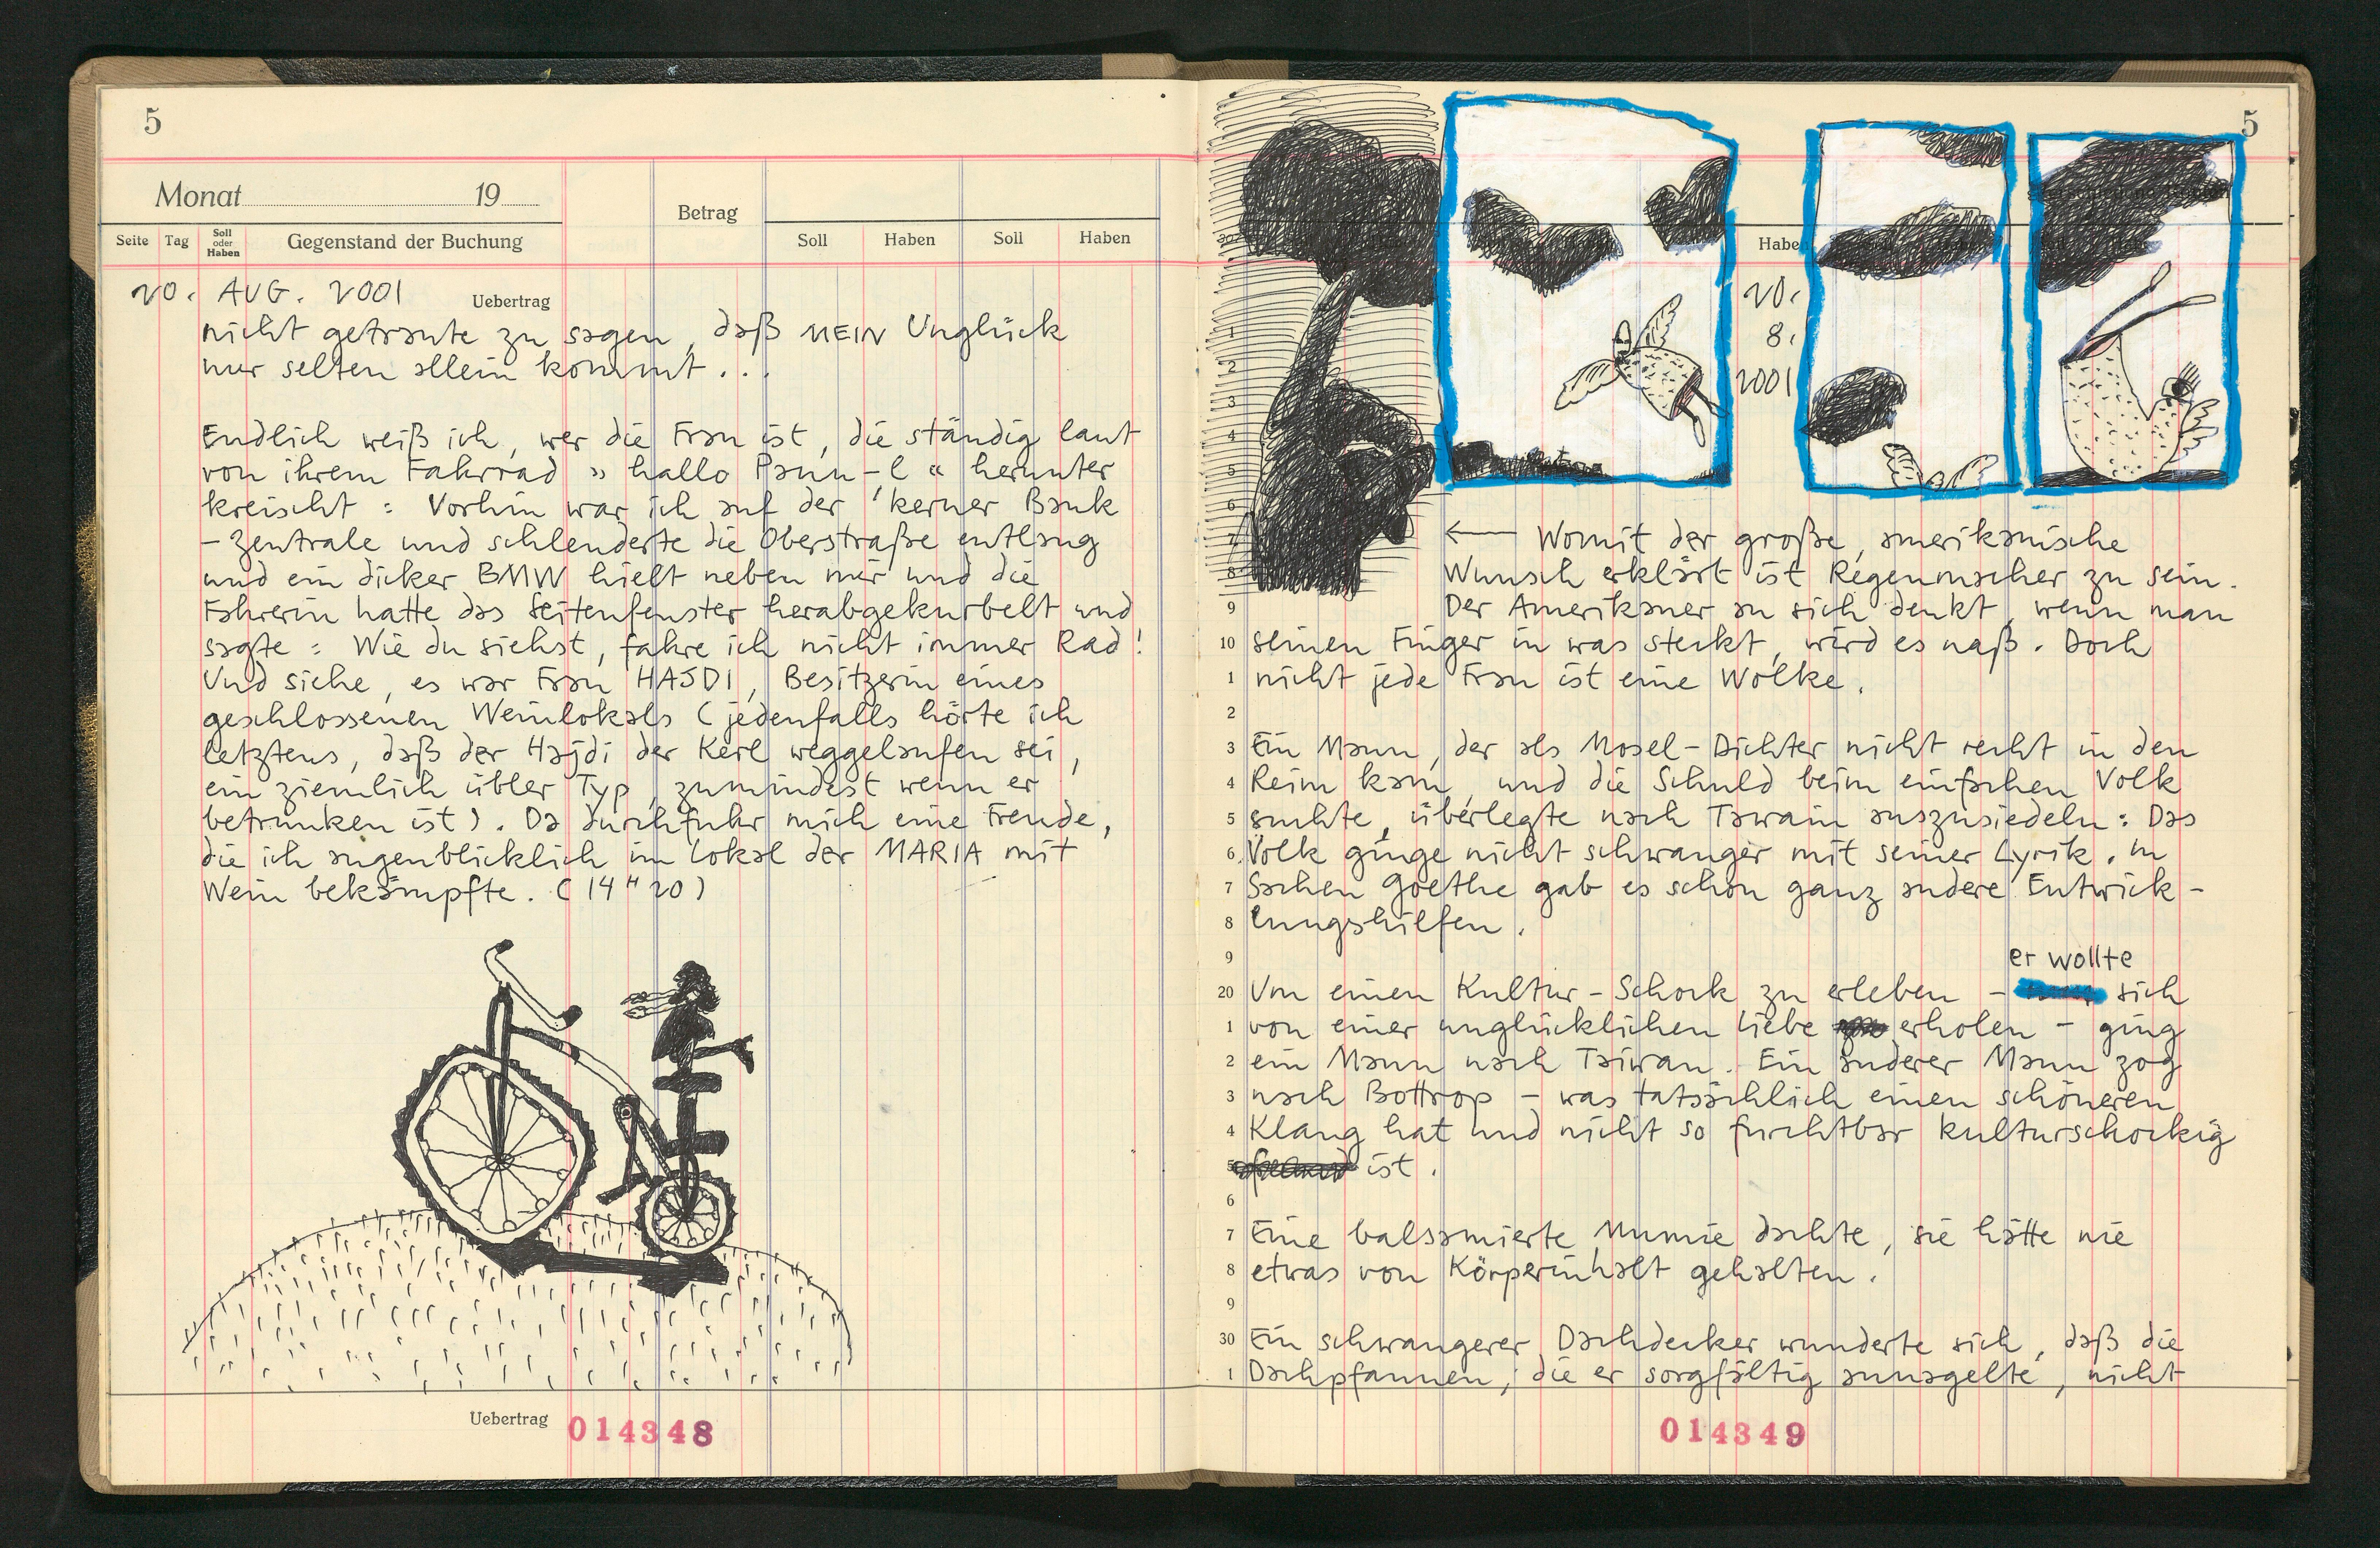 5
Monat 19
Betrag
Soll Haben Soll Haben
Seite Tag Soll oder Haben Gegenstand der Buchung
20. AUG. 2001 Uebertrag
nicht getraute zu sagen, daß MEIN Unglück
nur selten allein kommt...
Endlich weiß ich, wer die Frau ist, die ständig laut
von ihrem Fahrrad » hallo Pann-l « herunter
kreischt : Vorhin war ich auf der 'kerner Bank
- Zentrale und schlenderte die Oberstraße entlang
und ein dicker BMW hielt neben mir und die
Fahrerin hatte das Seitenfenster herabgekurbelt und
sagte : Wie du siehst, fahre ich nicht immer Rad!
Und siehe, es war Frau HAJDI, Besitzerin eines
geschlossenen Weinlokals ( jedenfalls hörte ich
letztens, daß der Hajdi der Kerl weggelaufen sei,
ein ziemlich übler Typ, zumindest wenn er
betrunken ist ). Da durchfuhr mich eine Freude,
die ich augenblicklich im Lokal der MARIA mit
Wein bekämpfte. ( 14 H 20 )
Uebertrag 014348
5
Haben
20.
8.
2001
1
2
3
4
5
6
7 ← Womit der große, amerikanische
8 Wunsch erklärt ist Regenmacher zu sein.
9 Der Amerikaner an sich denkt, wenn man
10 seinen Finger in was steckt, wird es naß. Doch
1 nicht jede Frau ist eine Wolke.
2
3 Ein Mann, der als Mosel-Dichter nicht recht in den
4 Reim kam, und die Schuld beim einfachen Volk
5 suchte, überlegte nach Tawain auszusiedeln : Das
6 Volk ginge nicht schwanger mit seiner Lyrik. In
7 Sachen Goethe gab es schon ganz andere Entwick-
8 lungshilfen.
9 er wollte
20 Um einen Kultur-Schock zu erleben - sich
1 von einer unglücklichen Liebe erholen - ging
2 ein Mann nach Taiwan. Ein anderer Mann zog
3 nach Bottrop - was tatsächlich einen schöneren
4 Klang hat und nicht so furchtbar kulturschockig
5 ist.
6
7 Eine balsamierte Mumie dachte, sie hätte nie
8 etwas von Körperinhalt gehalten.
9
30 Ein schwangerer Dachdecker wunderte sich, daß die
1 Dachpfannen, die er sorgfältig annagelte, nicht
014349